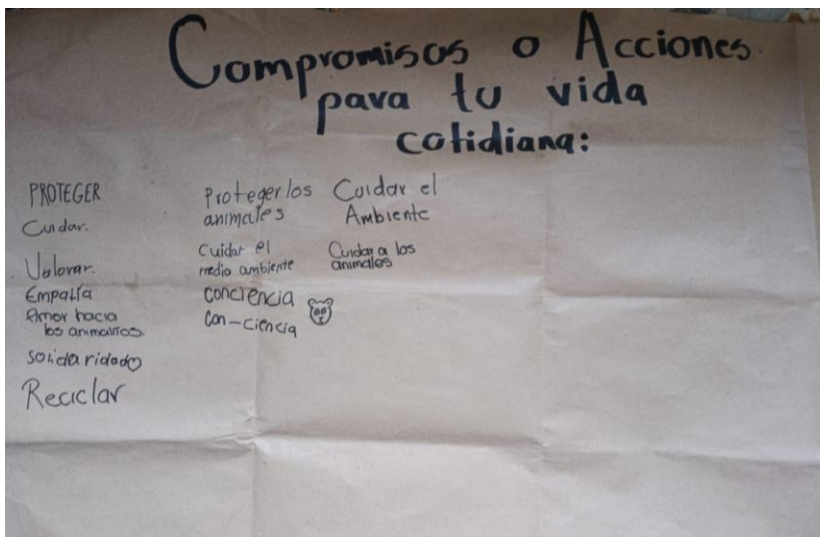 Compromisos o Acciones.
para tu vida
cotidiana:
PROTEGER
Cuidar.
Valorar.
Empatía
Amor hacia
los animalitos.
Solidaridad
Reciclar
Proteger los
animales
Cuidar el
medio ambiente
conciencia
con-ciencia
Cuidar el
Ambiente
Cuidar a los
animales